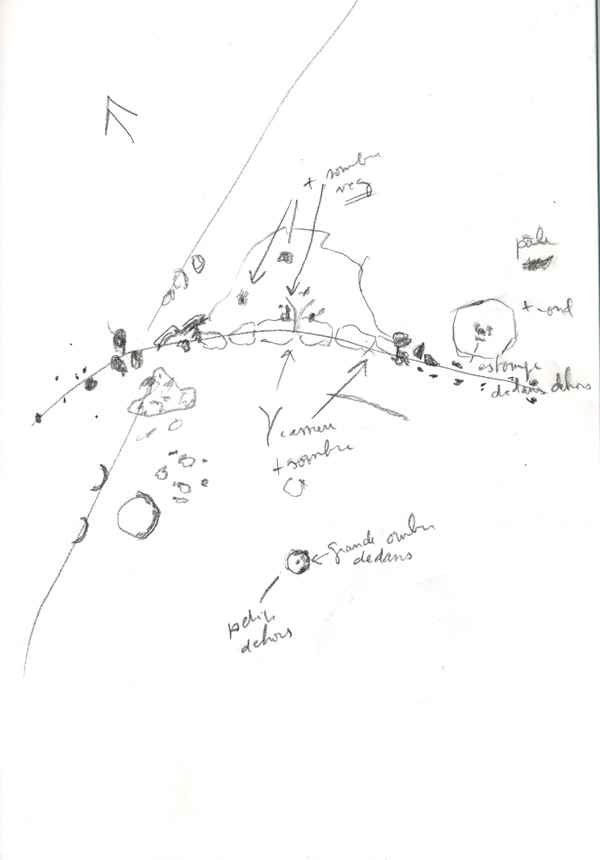 + sombre
veg
pâle
+ rond
estompe
dedans dehors
cassien
+ sombre
Grande ombre
dedans
petite
dehors